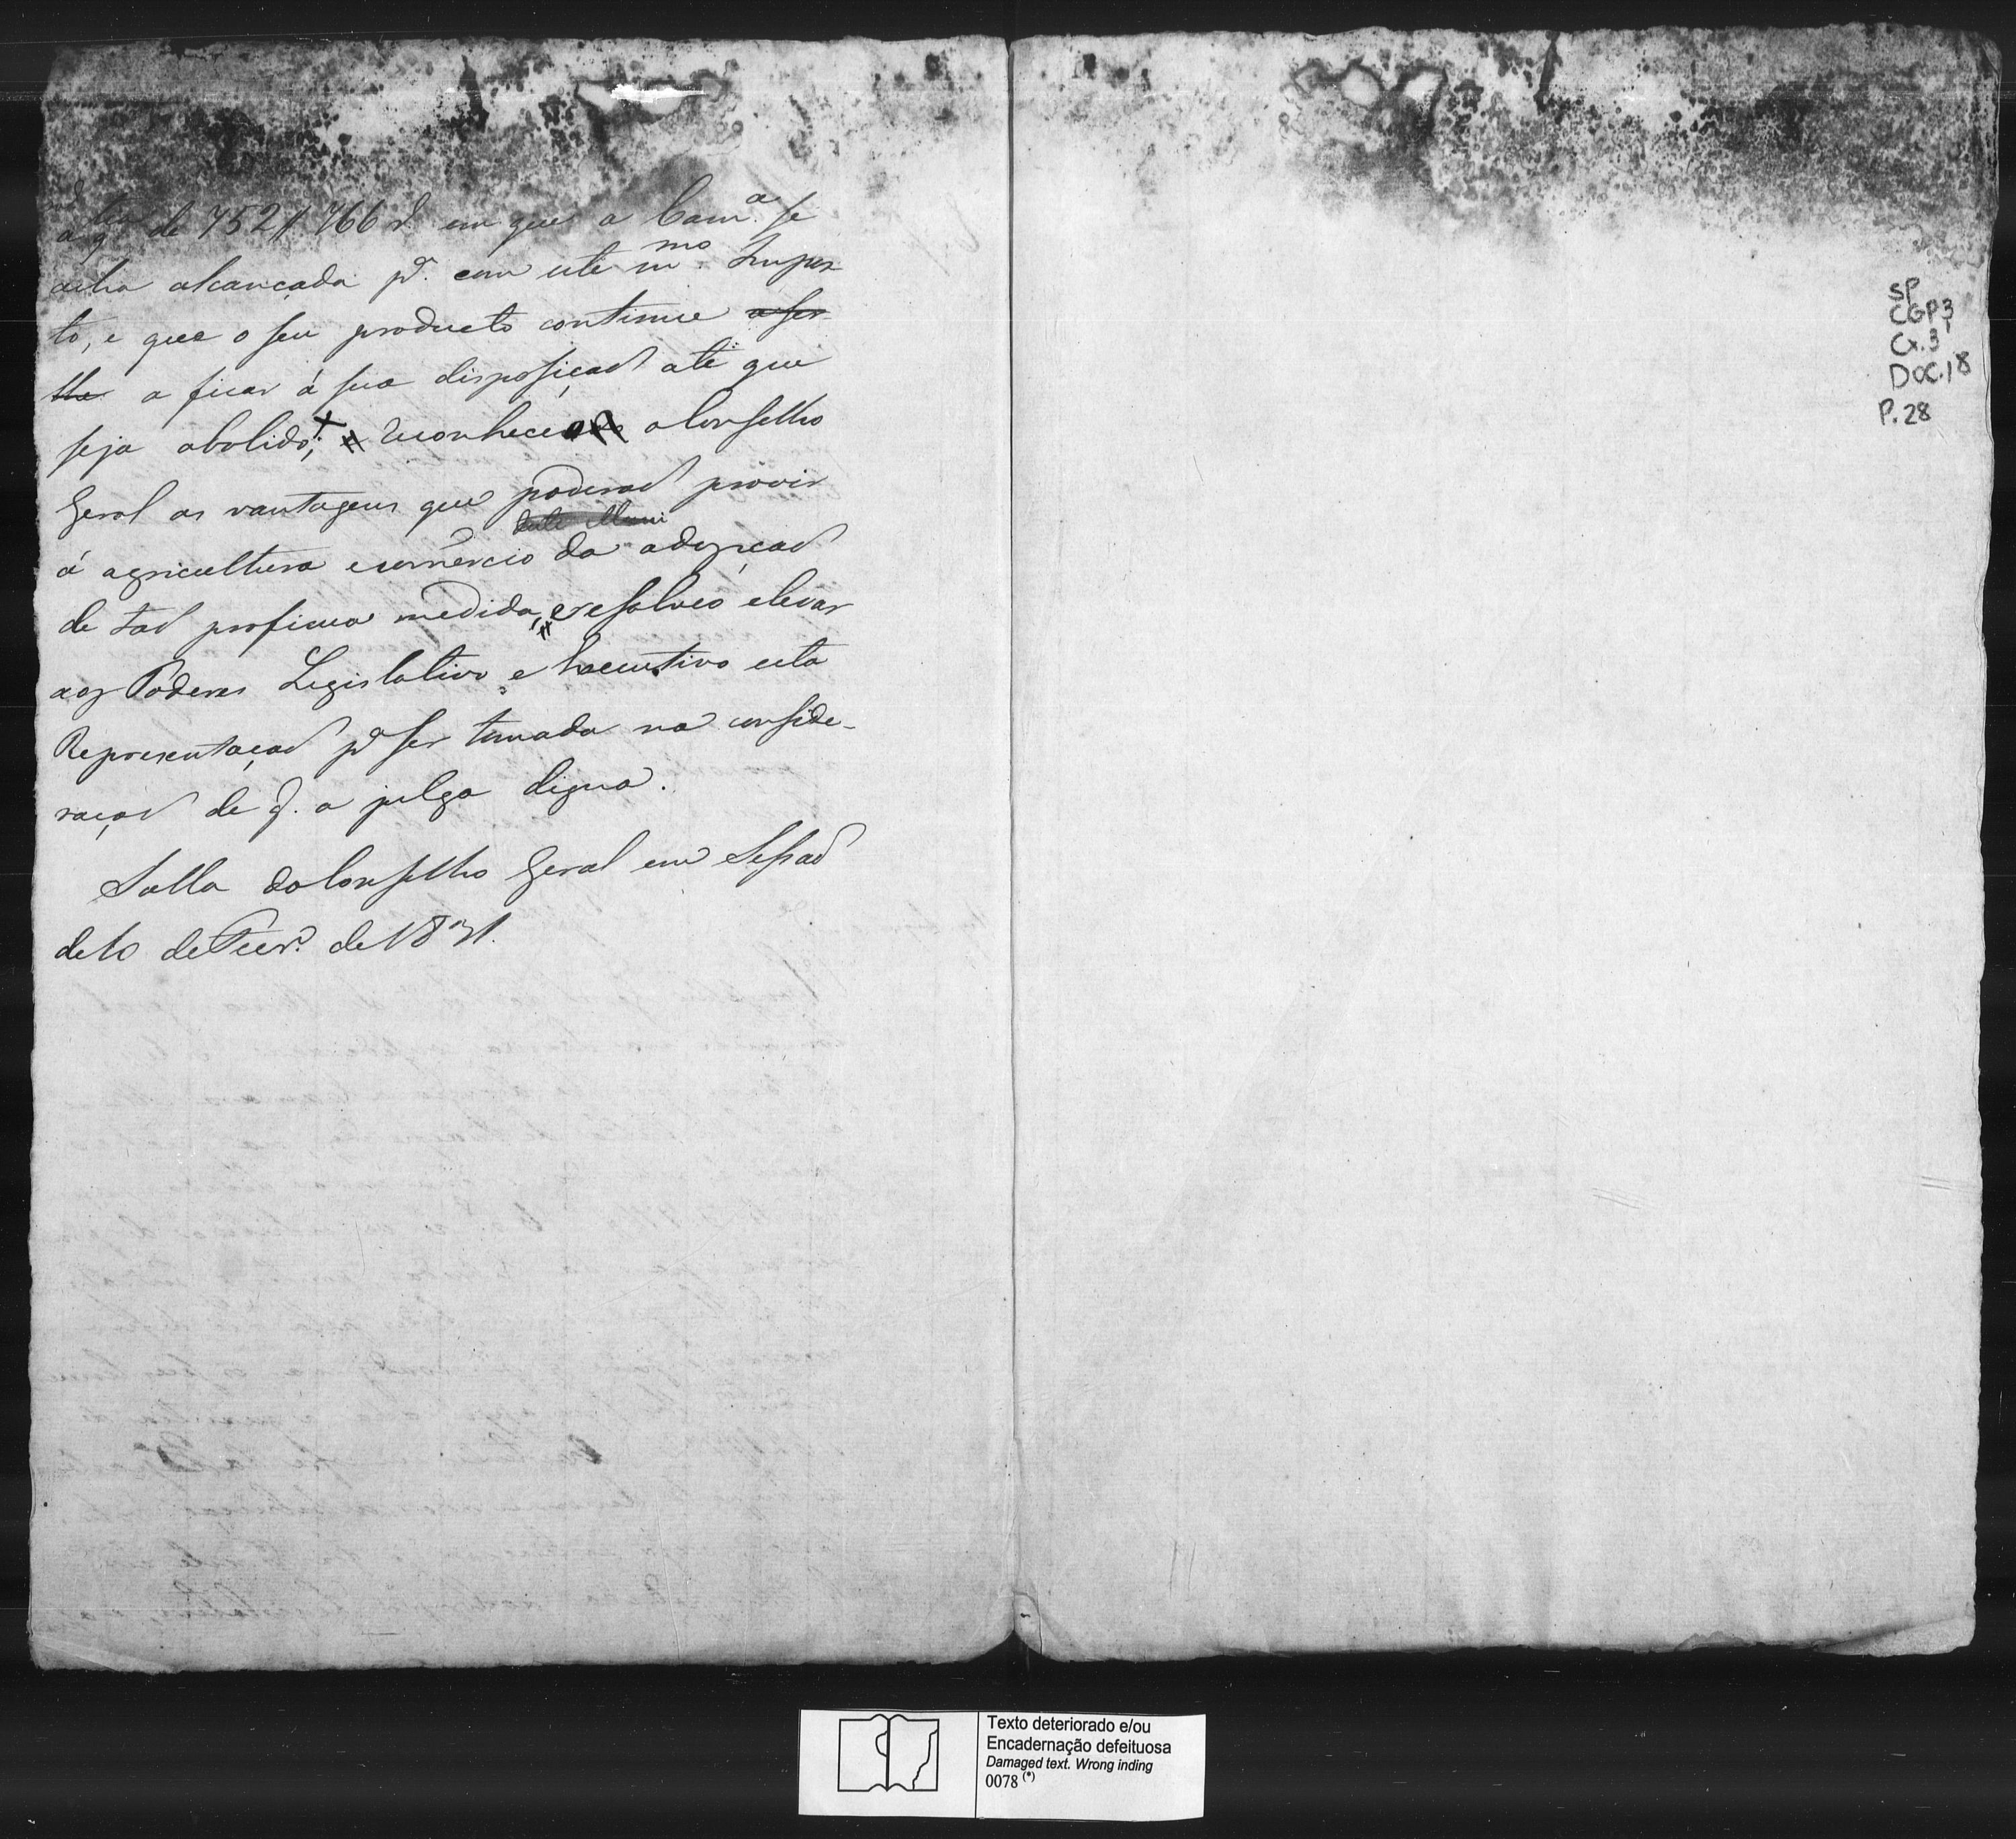 a q.ta de 752//766 rs em que a Cam.a se
acha alcançada p.a com este m.mo Impos
to, e que o seu producto continue a ser
lhe a ficar á sua disposiçaõ até que
seja abolido; reconhece o Conselho
Geral as vantagens que poderaõ provir
deste Muni
á agricultura e comercio da adopçaõ
de taõ proficua medida, e resolveo elevar
aos Poderes Legislativo e Executivo esta
Representaçaõ p.a ser tomada na conside-
raçaõ de q. a julga digna.
Salla do Conselho Geral em Sessaõ
de 10 de Fever.o de 1831.
SP
CGP3
Cx.3
DOC.18
P.28
Texto deteriorado e/ou
Encadernação defeituosa
Damaged text. Wrong inding
0078 (*)